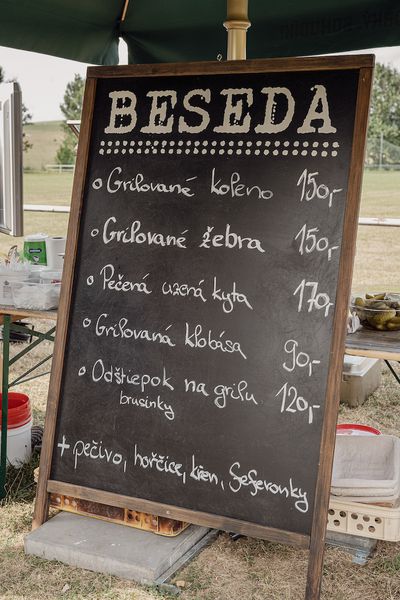 BESEDA
o Grilované koleno 150,-
o Grilované žebra 150,-
o Pečená uzená kyta 170,-
o Grilovaná klobása 90,-
o Odštiepok na grilu 120,-
brusinky
+ pečivo, hořčice, křen, feferonky